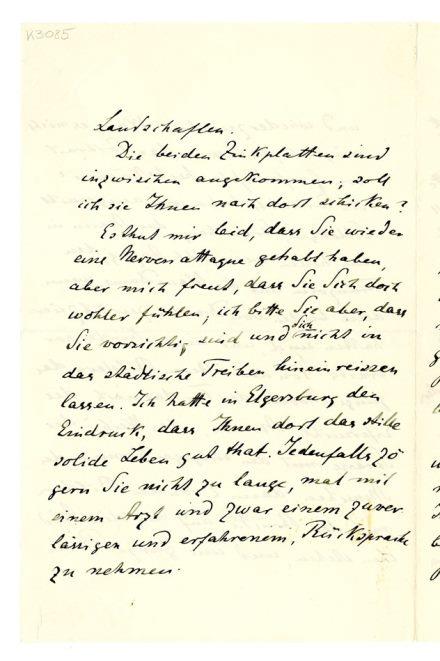 K3085
Landschaften.
Die beiden Zinkplatten sind
inzwischen angekommen; soll
ich sie Ihnen nach dort schicken?
Es thut mir leid, dass Sie wieder
eine Nervenattaque gehabt haben,
aber mich freut, dass Sie Sich doch
wohler fühlen; ich bitte Sie aber, dass
Sie vorsichtig sind und Sich nicht in
das städtische Treiben hineinreissen
lassen. Ich hatte in Elgersburg den
Eindruck, dass Ihnen dort das stille
solide Leben gut that. Jedenfalls zö
gern Sie nicht zu lange, mal mit
einem Arzt und zwar einem zuver
lässigen und erfahrenem, Rücksprache
zu nehmen.